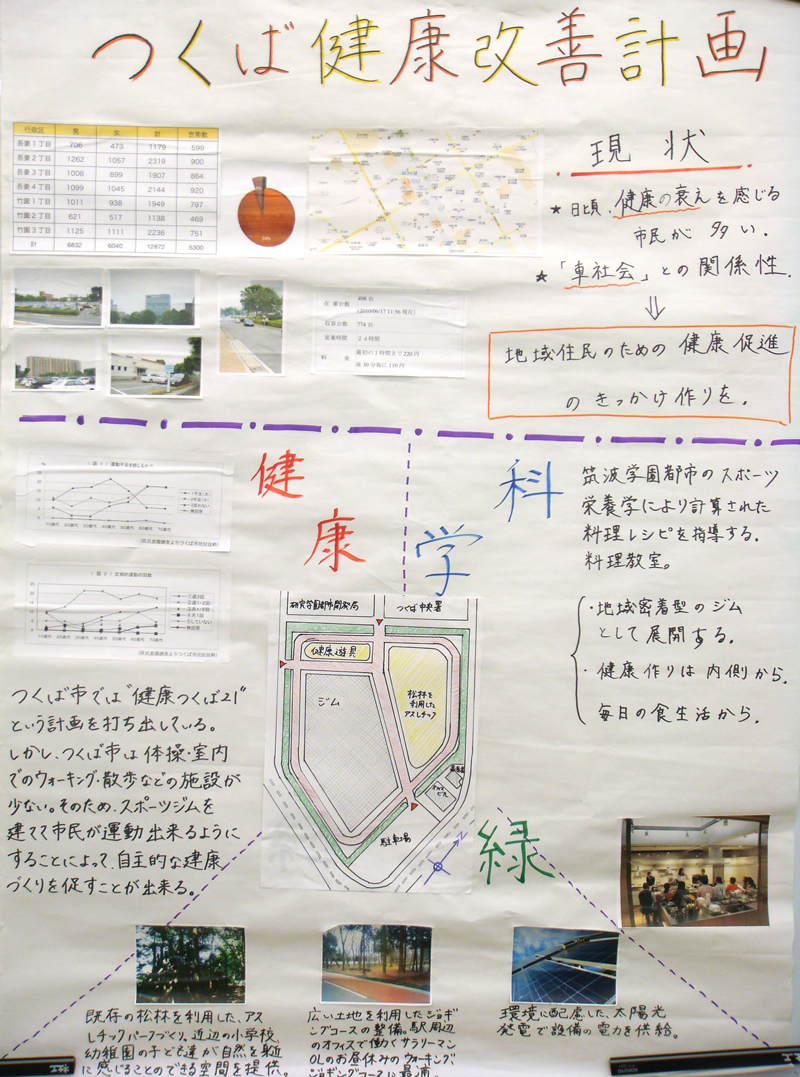 つくば健康改善計画
行政区 男 女 計 世帯数
吾妻1丁目 706 473 1179 599
吾妻2丁目 1262 1057 2319 900
吾妻3丁目 1008 899 1907 864
吾妻4丁目 1099 1045 2144 920
竹園1丁目 1011 938 1949 797
竹園2丁目 621 517 1138 469
竹園3丁目 1125 1111 2236 751
計 6832 6040 12872 5300
現状
★日頃、健康の衰えを感じる
市民が多い.
★「車社会」との関係性.
⇓
地域住民のための健康促進
のきっかけ作りを.
在庫台数 498台
(2010/06/17 11:56 現在)
収容台数 774台
営業時間 24時間
料金 最初の1時間まで220円
後30分毎に110円
健康
科学
筑波学園都市のスポーツ
栄養学により計算された
料理レシピを指導する.
料理教室。
・地域密着型のジム
として展開する.
・健康作りは内側から.
毎日の食生活から.
つくば市では"健康つくば21"
という計画を打ち出している。
しかし、つくば市は体操・室内
でのウォーキング・散歩などの施設が
少ない。そのため、スポーツジムを
建てて市民が運動出来るように
することによって、自主的な健康
づくりを促すことが出来る。
つくば中央署
健康遊具
ジム
松林を
利用した
アスレチック
駐車場
緑
既存の松林を利用した、アス
レチックパークづくり。近辺の小学校、
幼稚園の子ども達が自然を身近
に感じることのできる空間を提供。
広い土地を利用したジョギ
ングコースの整備。駅周辺
のオフィスで働くサラリーマン
OLのお昼休みのウォーキング、
ジョギングコースに最適。
環境に配慮した、太陽光
発電で設備の電力を供給。